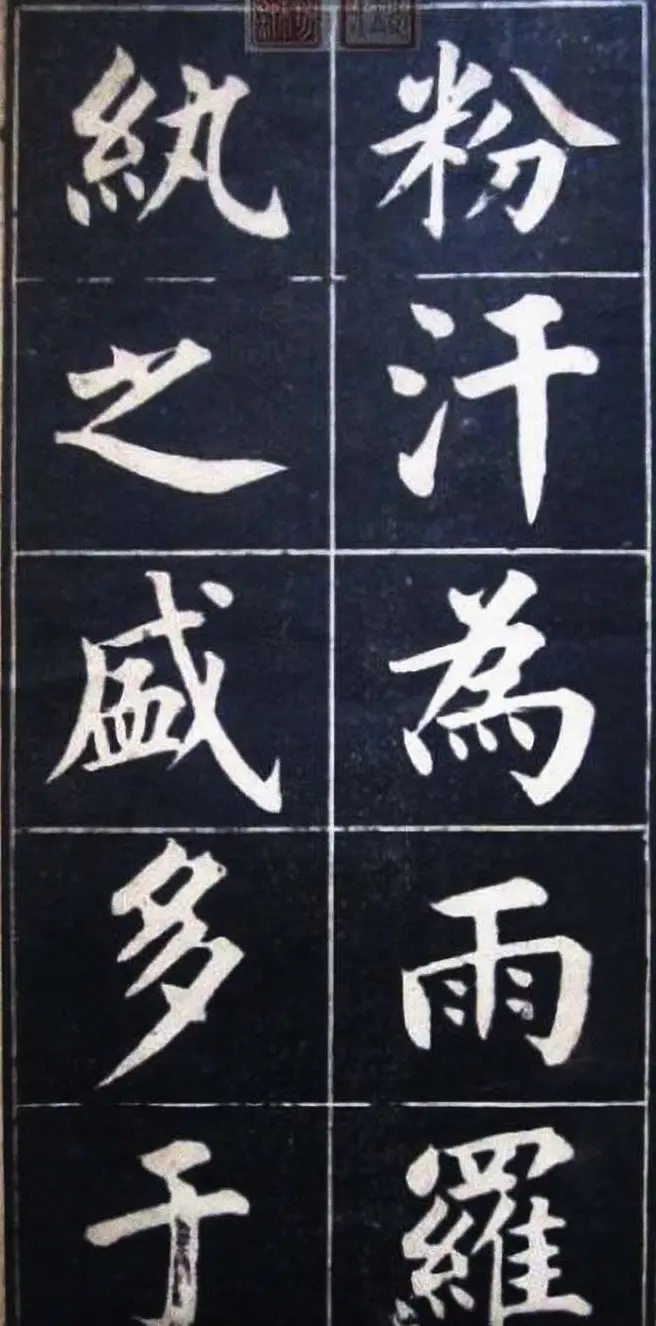 粉汗為雨羅
紈之盛多于